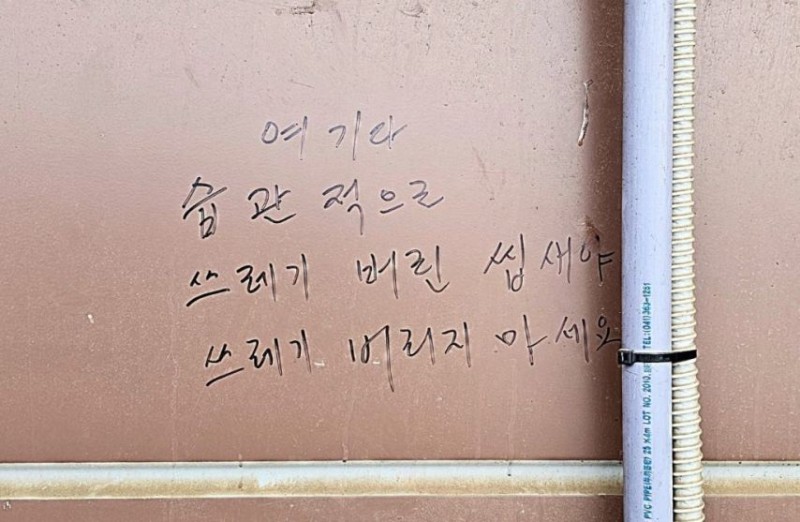 여기다
습관적으로
쓰레기 버린 씹새야
쓰레기 버리지 마세요
PVC PIPE(하이관) 25 X4m LOT NO. 2010. TEL:(041)363-1251